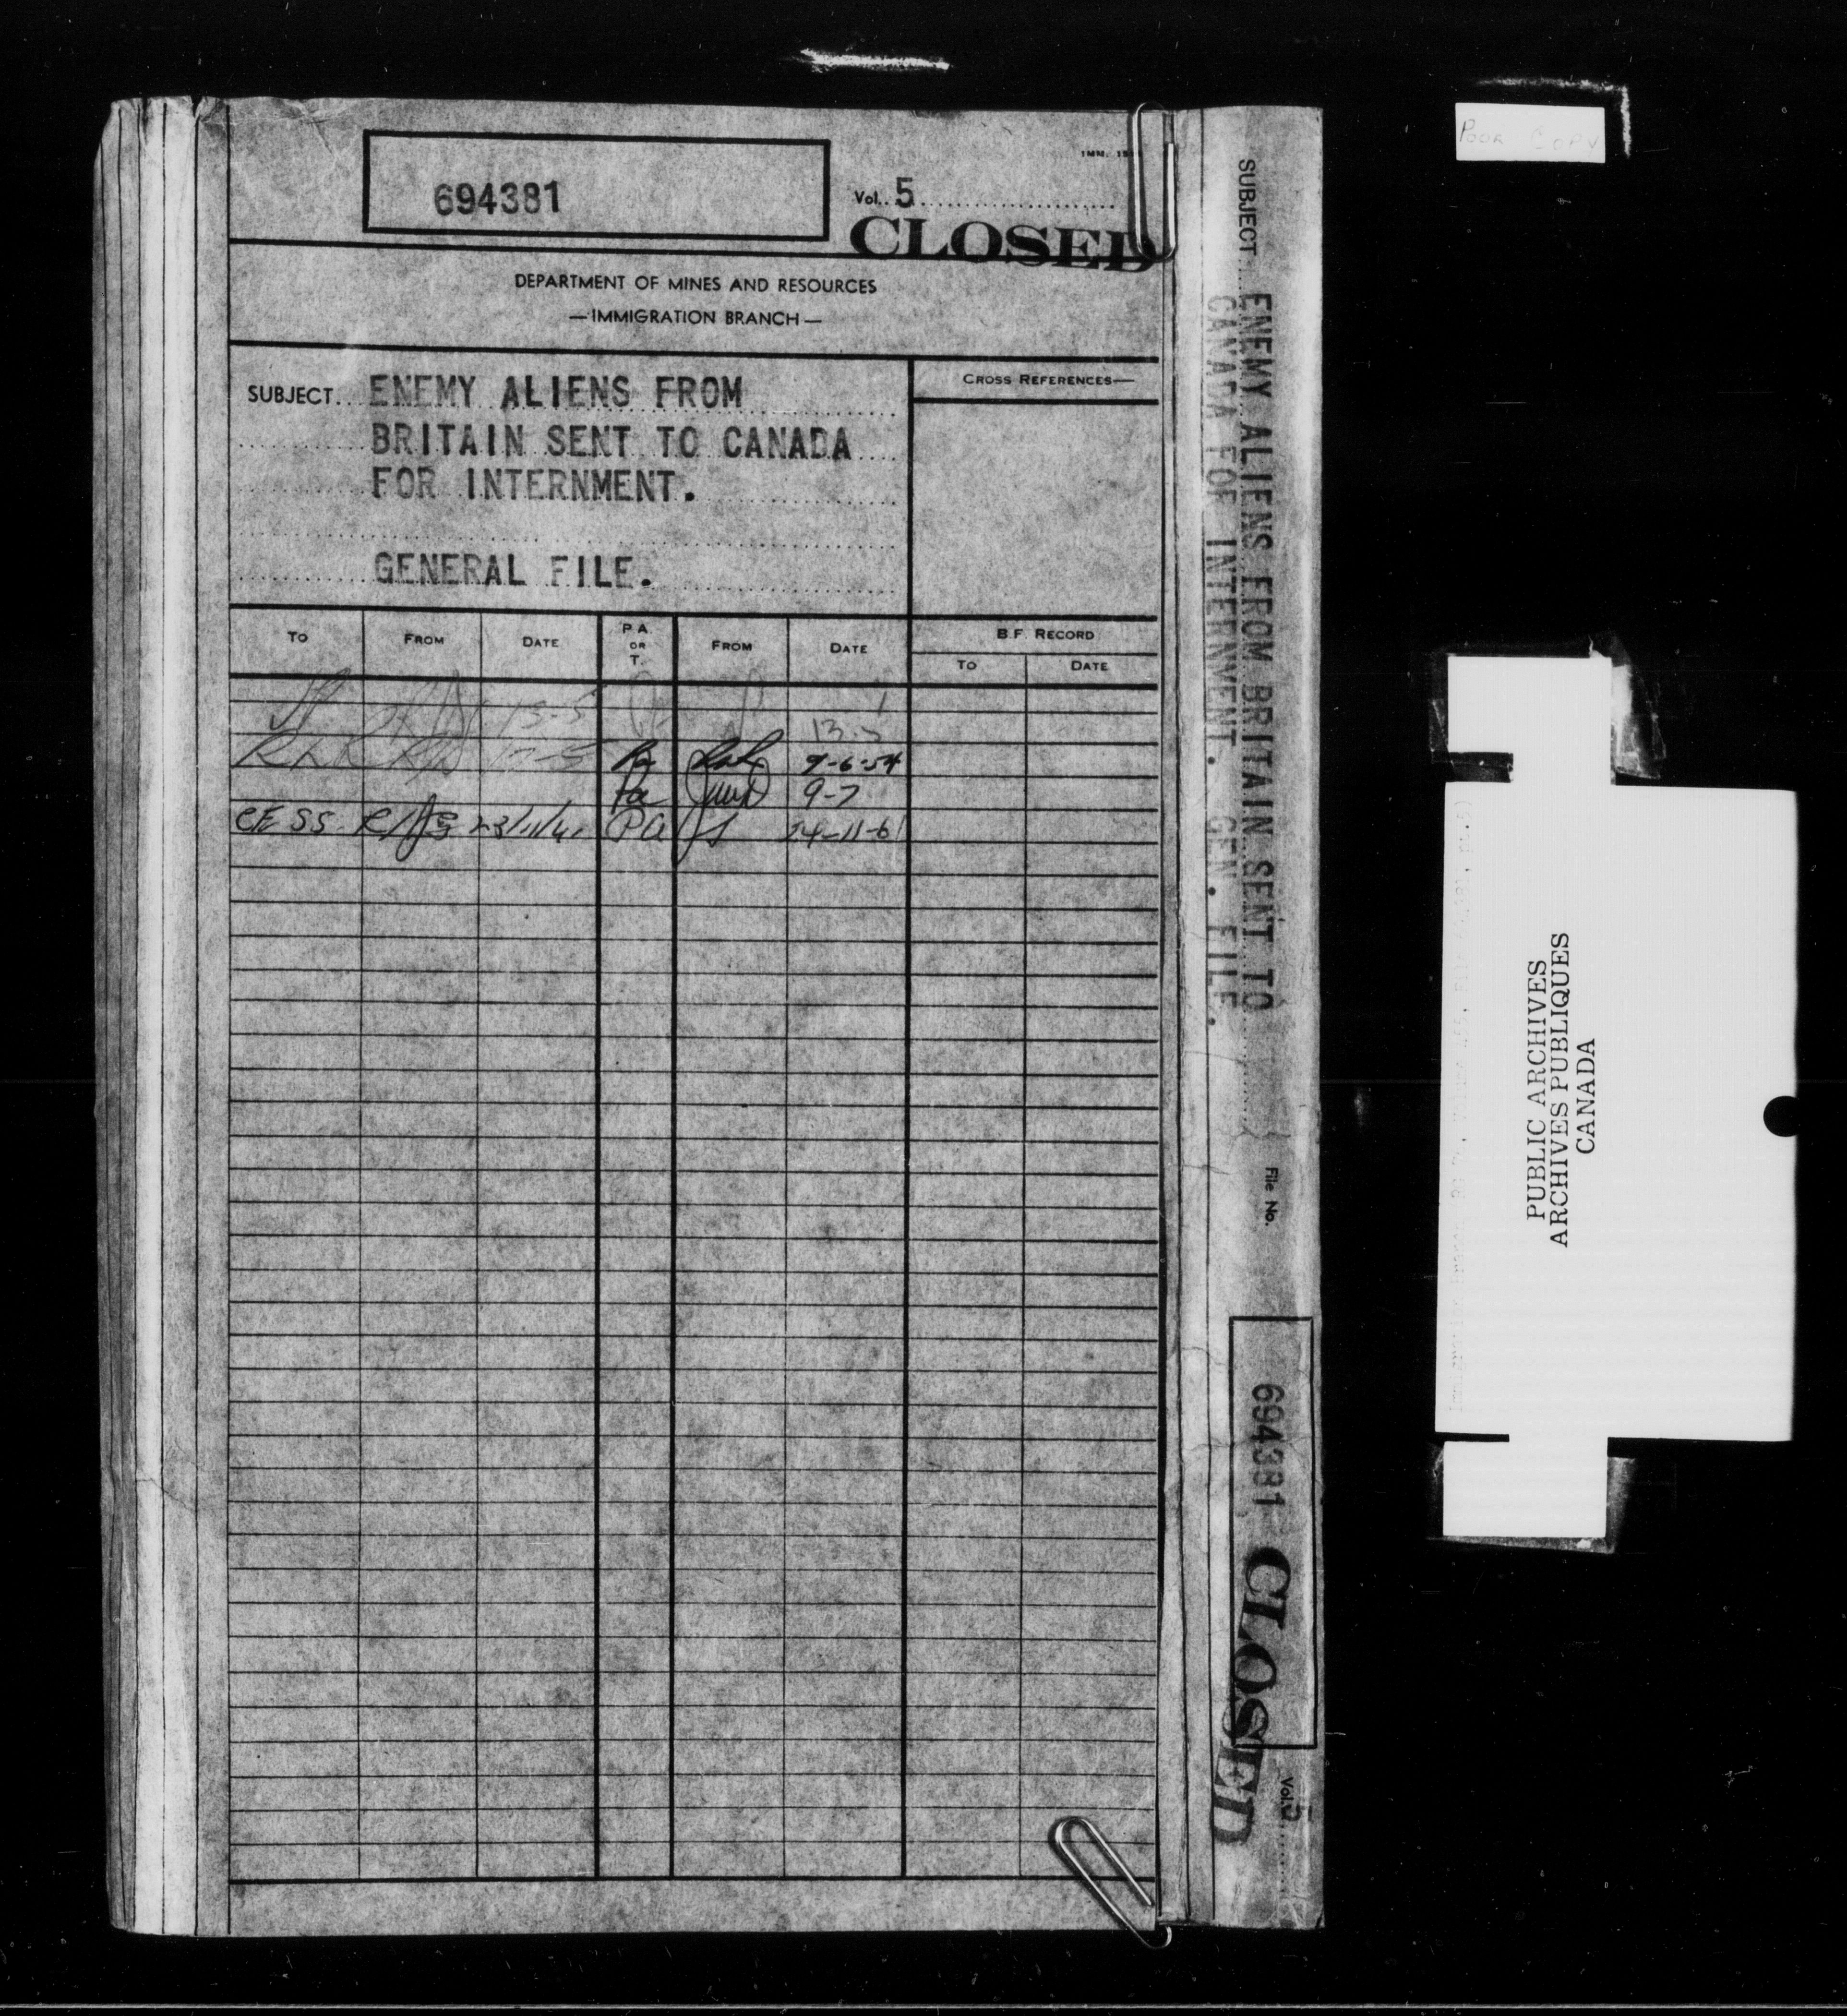 694381
Vol. 5
CLOSED
DEPARTMENT OF MINES AND RESOURCES
—IMMIGRATION BRANCH—
SUBJECT ENEMY ALIENS FROM
BRITAIN SENT TO CANADA
FOR INTERNMENT.
GENERAL FILE.
CROSS REFERENCES—
TO FROM DATE P.A. OR T. FROM DATE B.F. RECORD
TO DATE
15-5
13-5
17-5 9-6-54
9-7
CESS 23/11/61 PA 24-11-61
SUBJECT ENEMY ALIENS FROM BRITAIN SENT TO
CANADA FOR INTERNMENT. GEN. FILE.
File No.
694381
CLOSED
Vol. 5
POOR COPY
PUBLIC ARCHIVES
ARCHIVES PUBLIQUES
CANADA